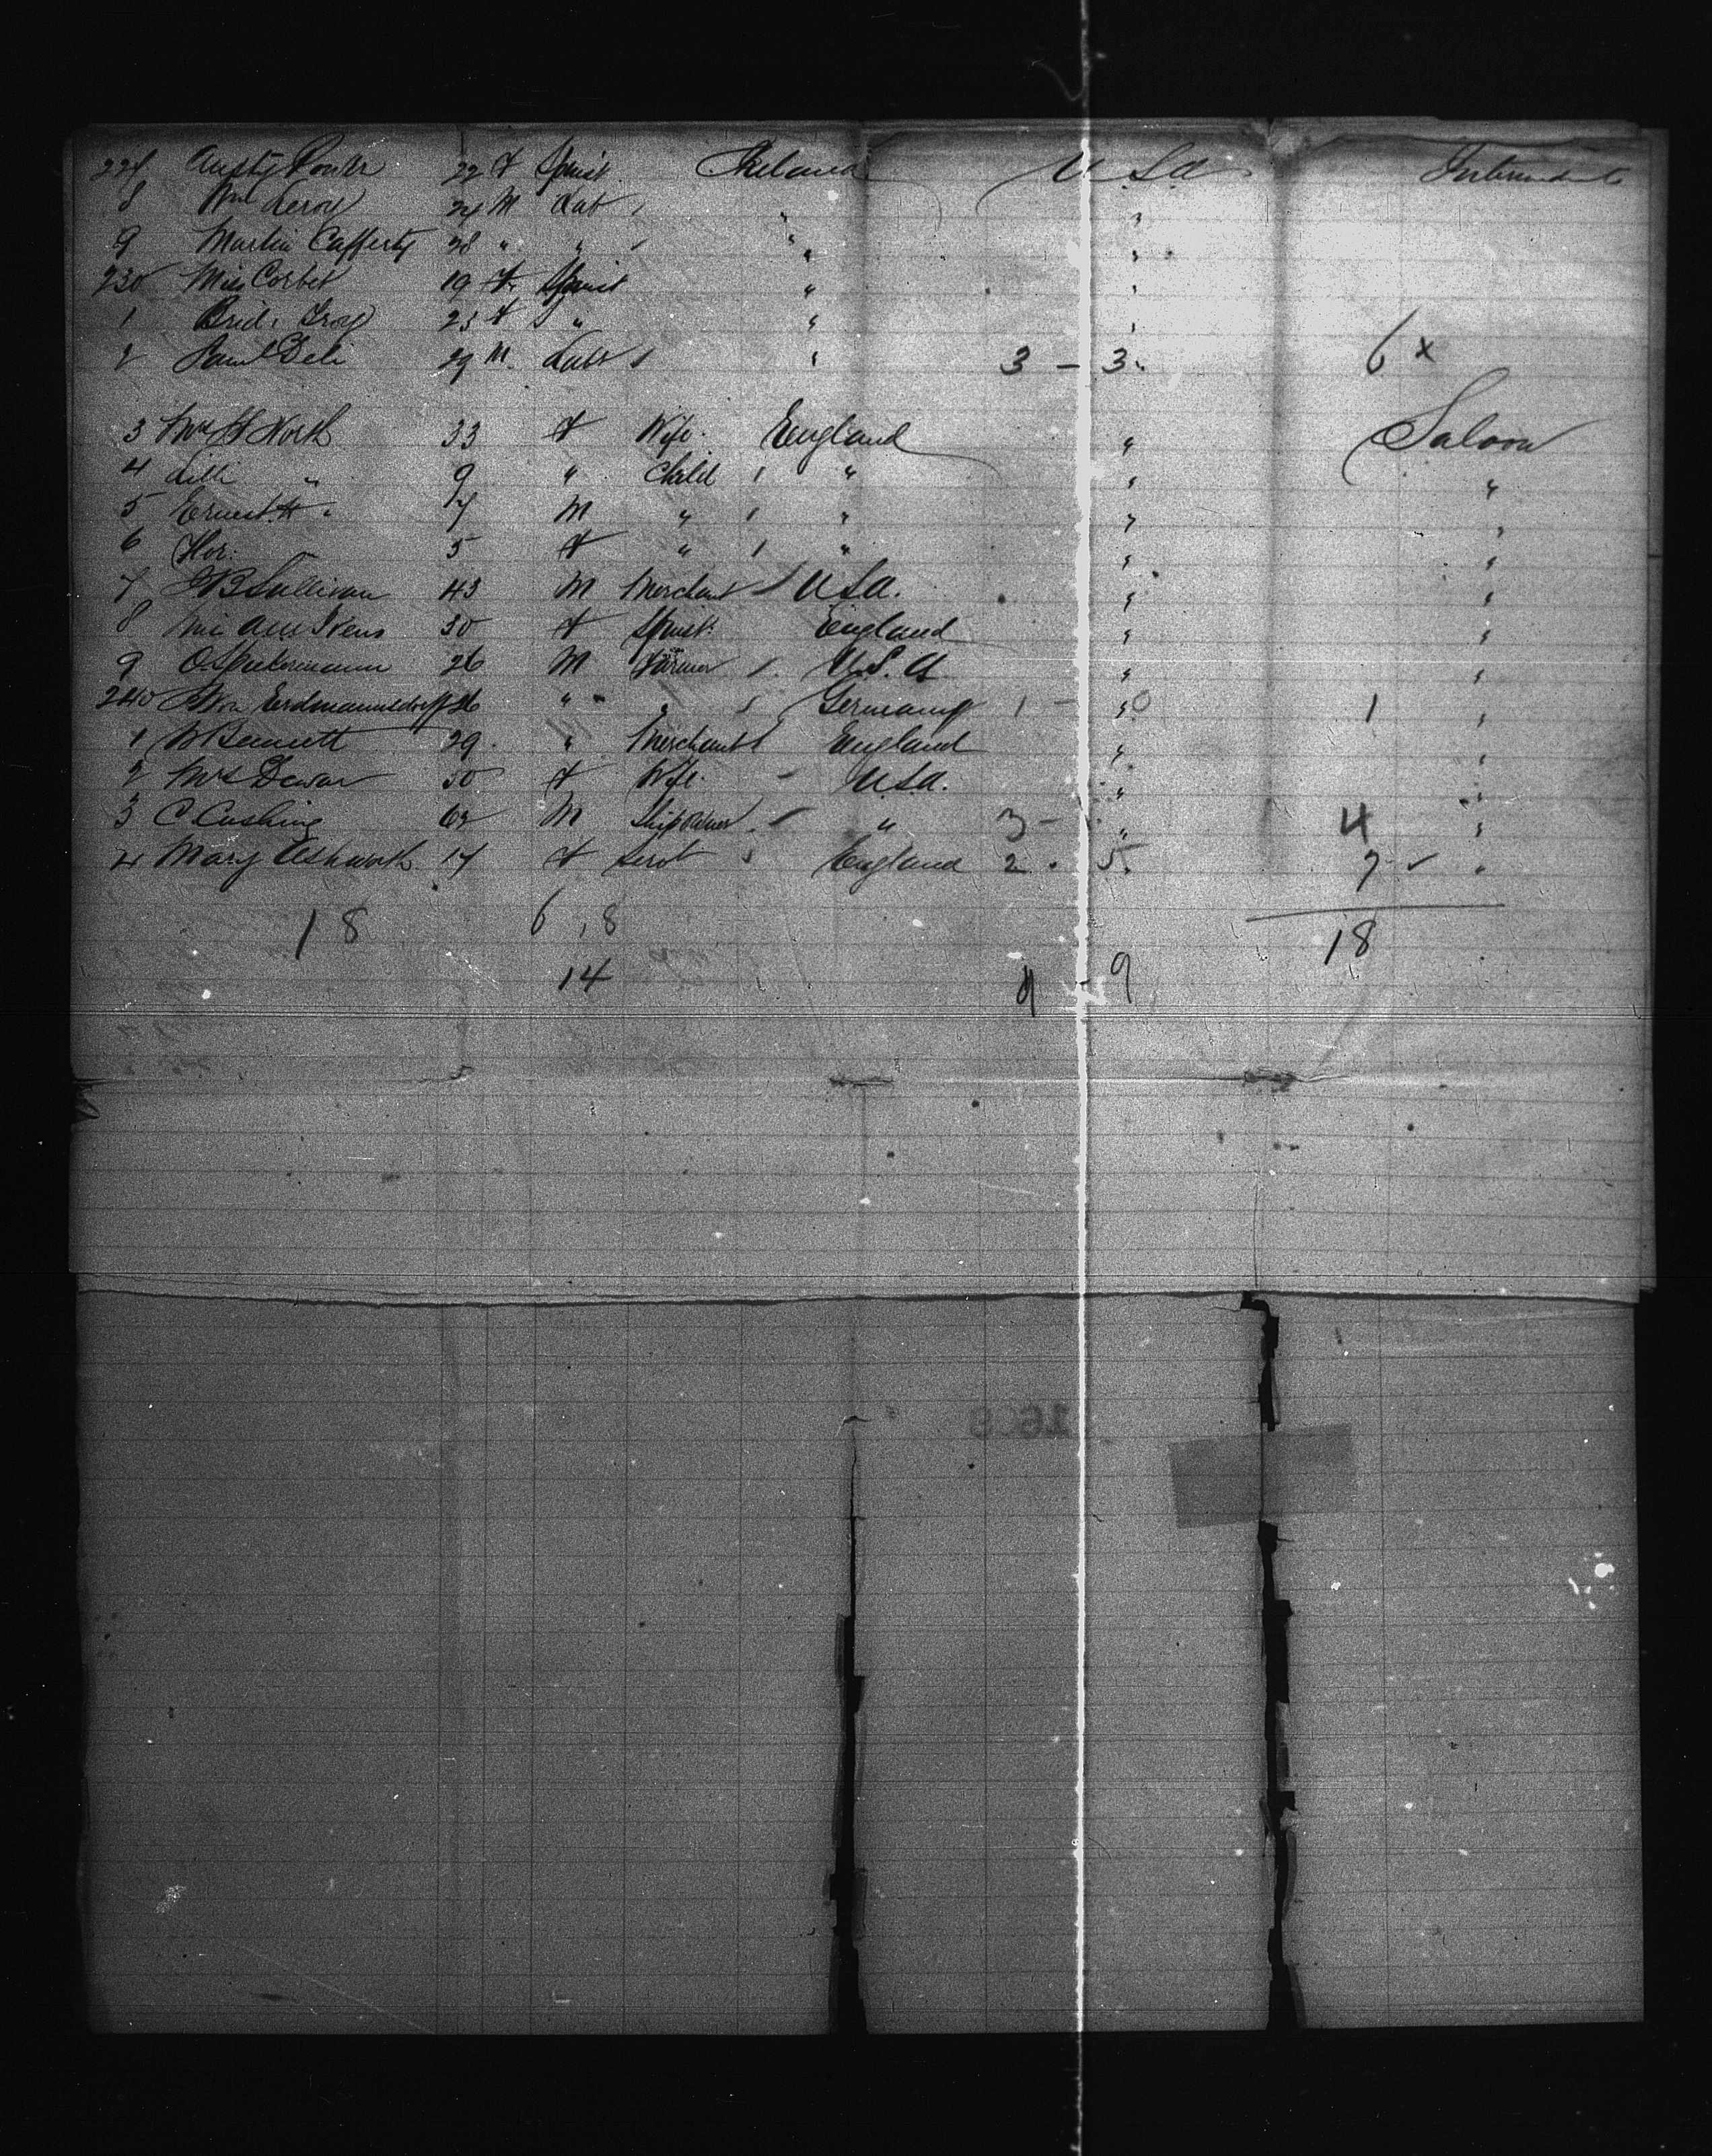 227 Austy Power 22 F Spinst. Ireland U.S.A. Intermediate
8 Wm Leroy 24 M Lab " "
9 Martin Cafferty 28 " " " "
230 Miss Corbet 19 F. Spinst " "
1 Brid. Troy 25 F " " "
2 29 M. Labr " 3 – 3. 6 x
3 Mrs North 33 F Wife. England " Saloon
4 Lilli " 9 " Child " " "
5 Ernest H " 7 M " " " "
6 Flor: 5 F " " " "
7 J B Sullivan 43 M Merchant U.S.A. " "
8 Miss 30 F Spinst. England " "
9 26 M Farmer U.S.A " "
240 Von Erdmannsdorff 26 " " Germany 1 – 0 1 "
1 W Bennett 29. " Merchant England " "
2 Mrs Dewar 30 F Wife. U.S.A. " "
3 C Cushing 62 M Ship Owner. " 3 – " 4 "
4 Mary Ashworth. 17 F Servt England 2 . 5. 7 "
18 6 , 8 18
14 9 - 9